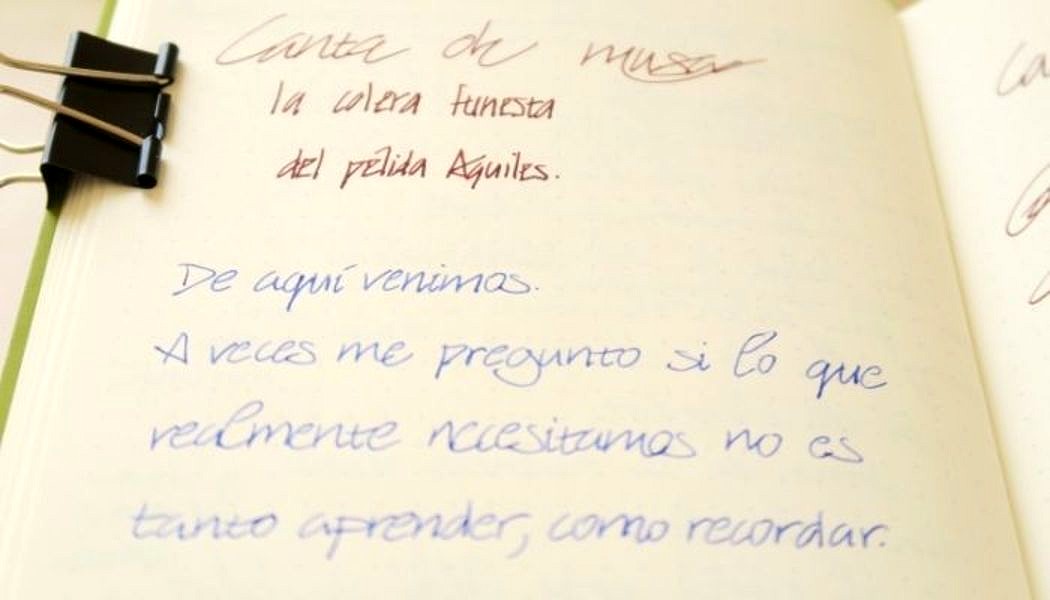 Canta oh musa
la colera funesta
del pélida Aquiles.
De aquí venimos.
A veces me pregunto si lo que
realmente necesitamos no es
tanto aprender, como recordar.